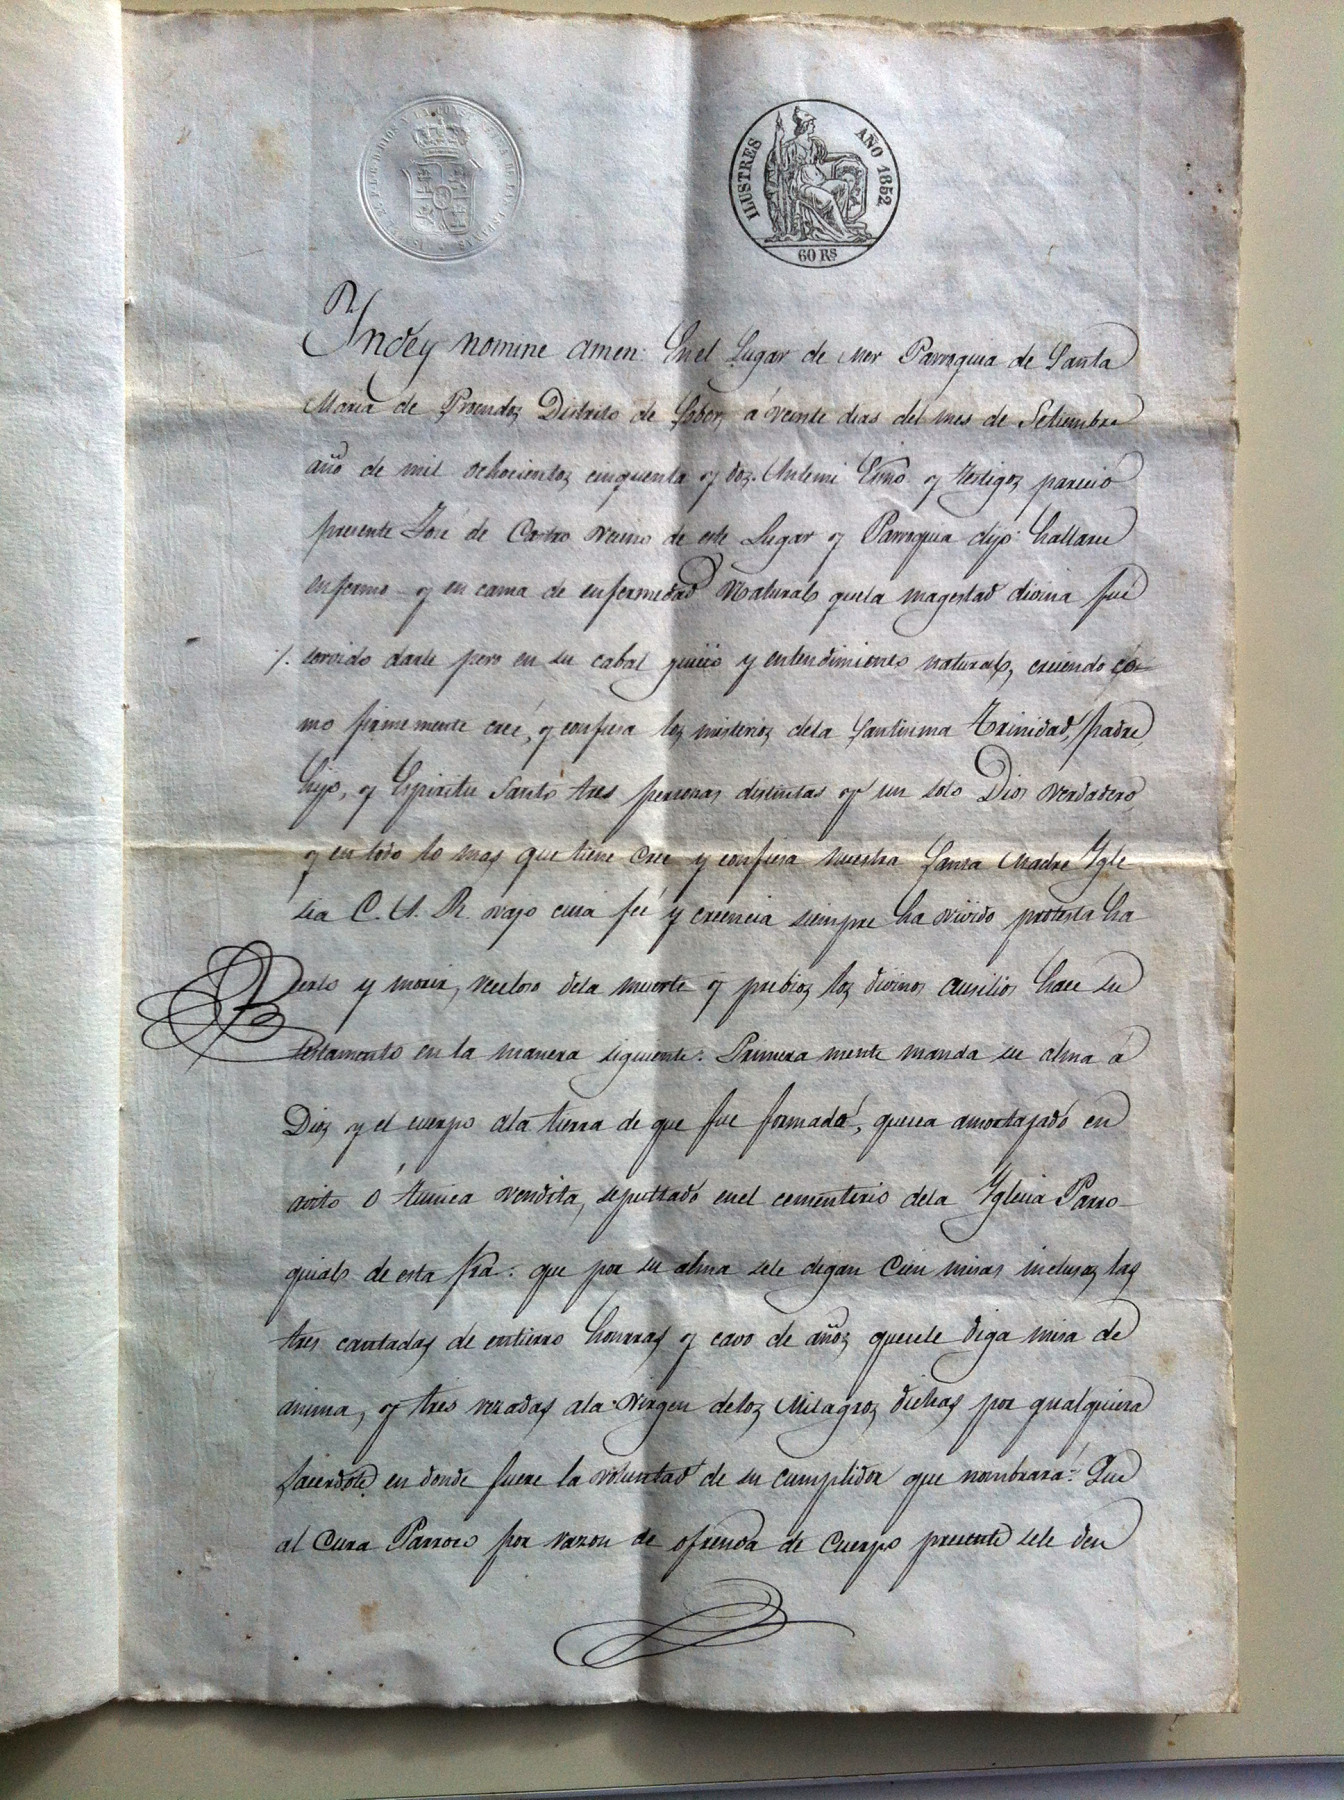 ILUSTRES AÑO 1852
60 Rs
Yndey nomine amen: En el Lugar de Mer Parroquia de Santa
Maria de Proendoz Distrito de Sober, á veinte dias del mes de Setiembre
año de mil ochocientos cinquenta y dos. Antemi Esno y testigos parecio
presente José de Castro vecino de este Lugar y Parroquia dijo hallarse
enfermo y en cama de enfermedad Natural quela magestad divina fué
servido darle pero en su cabal juicio y entendimiento natural, creiendo co-
mo firmemente creé, y confiesa los misterios dela Santisima Trinidad, padre,
hijo, y Espiritu Santo tres personas distintas y un solo Dios verdadero,
y en todo lo mas que tiene Cree y confiesa nuestra Santa Madre Ygle
sia C. A. R. vajo cuia feé y creencia siempre ha vivido protesta ha
cerlo y morir, receloso dela muerte y prebios los divinos ausilios hace su
testamento en la manera siguiente: Primera mente manda su alma á
Dios y el cuerpo ala tierra de que fue formado, quesea amortajado en
avito ó tunica vendita, sepultado enel cementerio dela Yglesia Parro-
quial de esta fra: que por su alma sele digan Cien misas inclusas las
tres cantadas de entierro honrras y cavo de años, quesele diga misa de
anima, y tres rezadas ala Virgen delos Milagros dichas por qualquiera
sacerdote en donde fuere la voluntad de su cumplidor que nombrará: Que
al Cura Parroco por razon de ofrenda de Cuerpo presente sele den